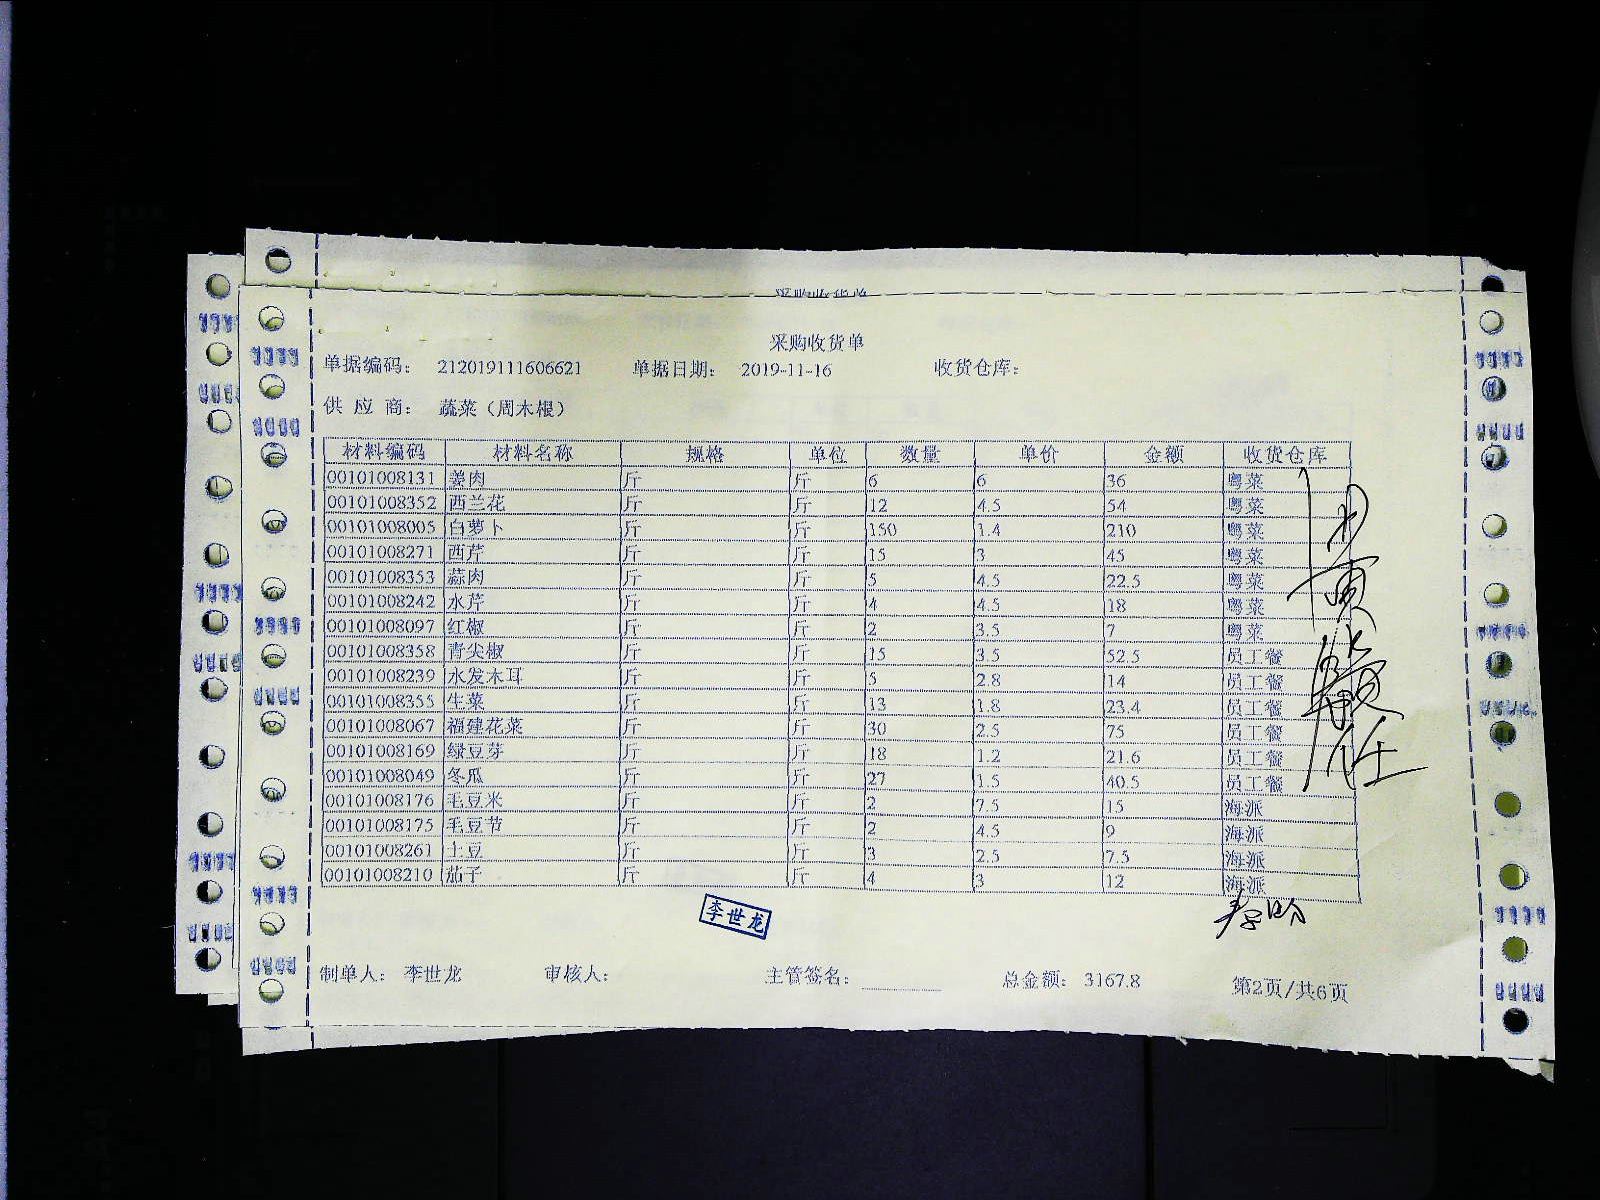 采购收货单
单据编码： 212019111606621 单据日期： 2019-11-16 收货仓库：
供 应 商： 蔬菜（周木根）
材料编码 材料名称 规格 单位 数量 单价 金额 收货仓库
00101008131 姜肉 斤 斤 6 6 36 粤菜
00101008352 西兰花 斤 斤 12 4.5 54 粤菜
00101008005 白萝卜 斤 斤 150 1.4 210 粤菜
00101008271 西芹 斤 斤 15 3 45 粤菜
00101008353 蒜肉 斤 斤 5 4.5 22.5 粤菜
00101008242 水芹 斤 斤 4 4.5 18 粤菜
00101008097 红椒 斤 斤 2 3.5 7 粤菜
00101008358 青尖椒 斤 斤 15 3.5 52.5 员工餐
00101008239 水发木耳 斤 斤 5 2.8 14 员工餐
00101008355 生菜 斤 斤 13 1.8 23.4 员工餐
00101008067 福建花菜 斤 斤 30 2.5 75 员工餐
00101008169 绿豆芽 斤 斤 18 1.2 21.6 员工餐
00101008049 冬瓜 斤 斤 27 1.5 40.5 员工餐
00101008176 毛豆米 斤 斤 2 7.5 15 海派
00101008175 毛豆节 斤 斤 2 4.5 9 海派
00101008261 土豆 斤 斤 3 2.5 7.5 海派
00101008210 茄子 斤 斤 4 3 12 海派
李世龙
制单人： 李世龙 审核人： 主管签名： 总金额： 3167.8 第2页/共6页